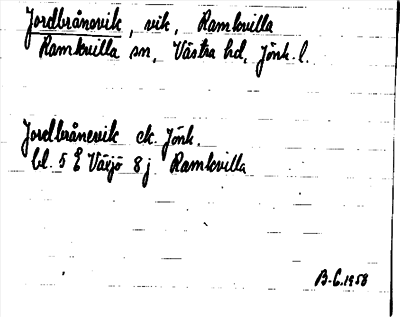 Jordbrånsvik, vik, Ramkvilla
Ramkvilla sn, Västra hd, Jönk. l.
Jordbrånsvik ek. Jönk.
bl. 5 E Växjö 8 j Ramkvilla
B-C. 1958